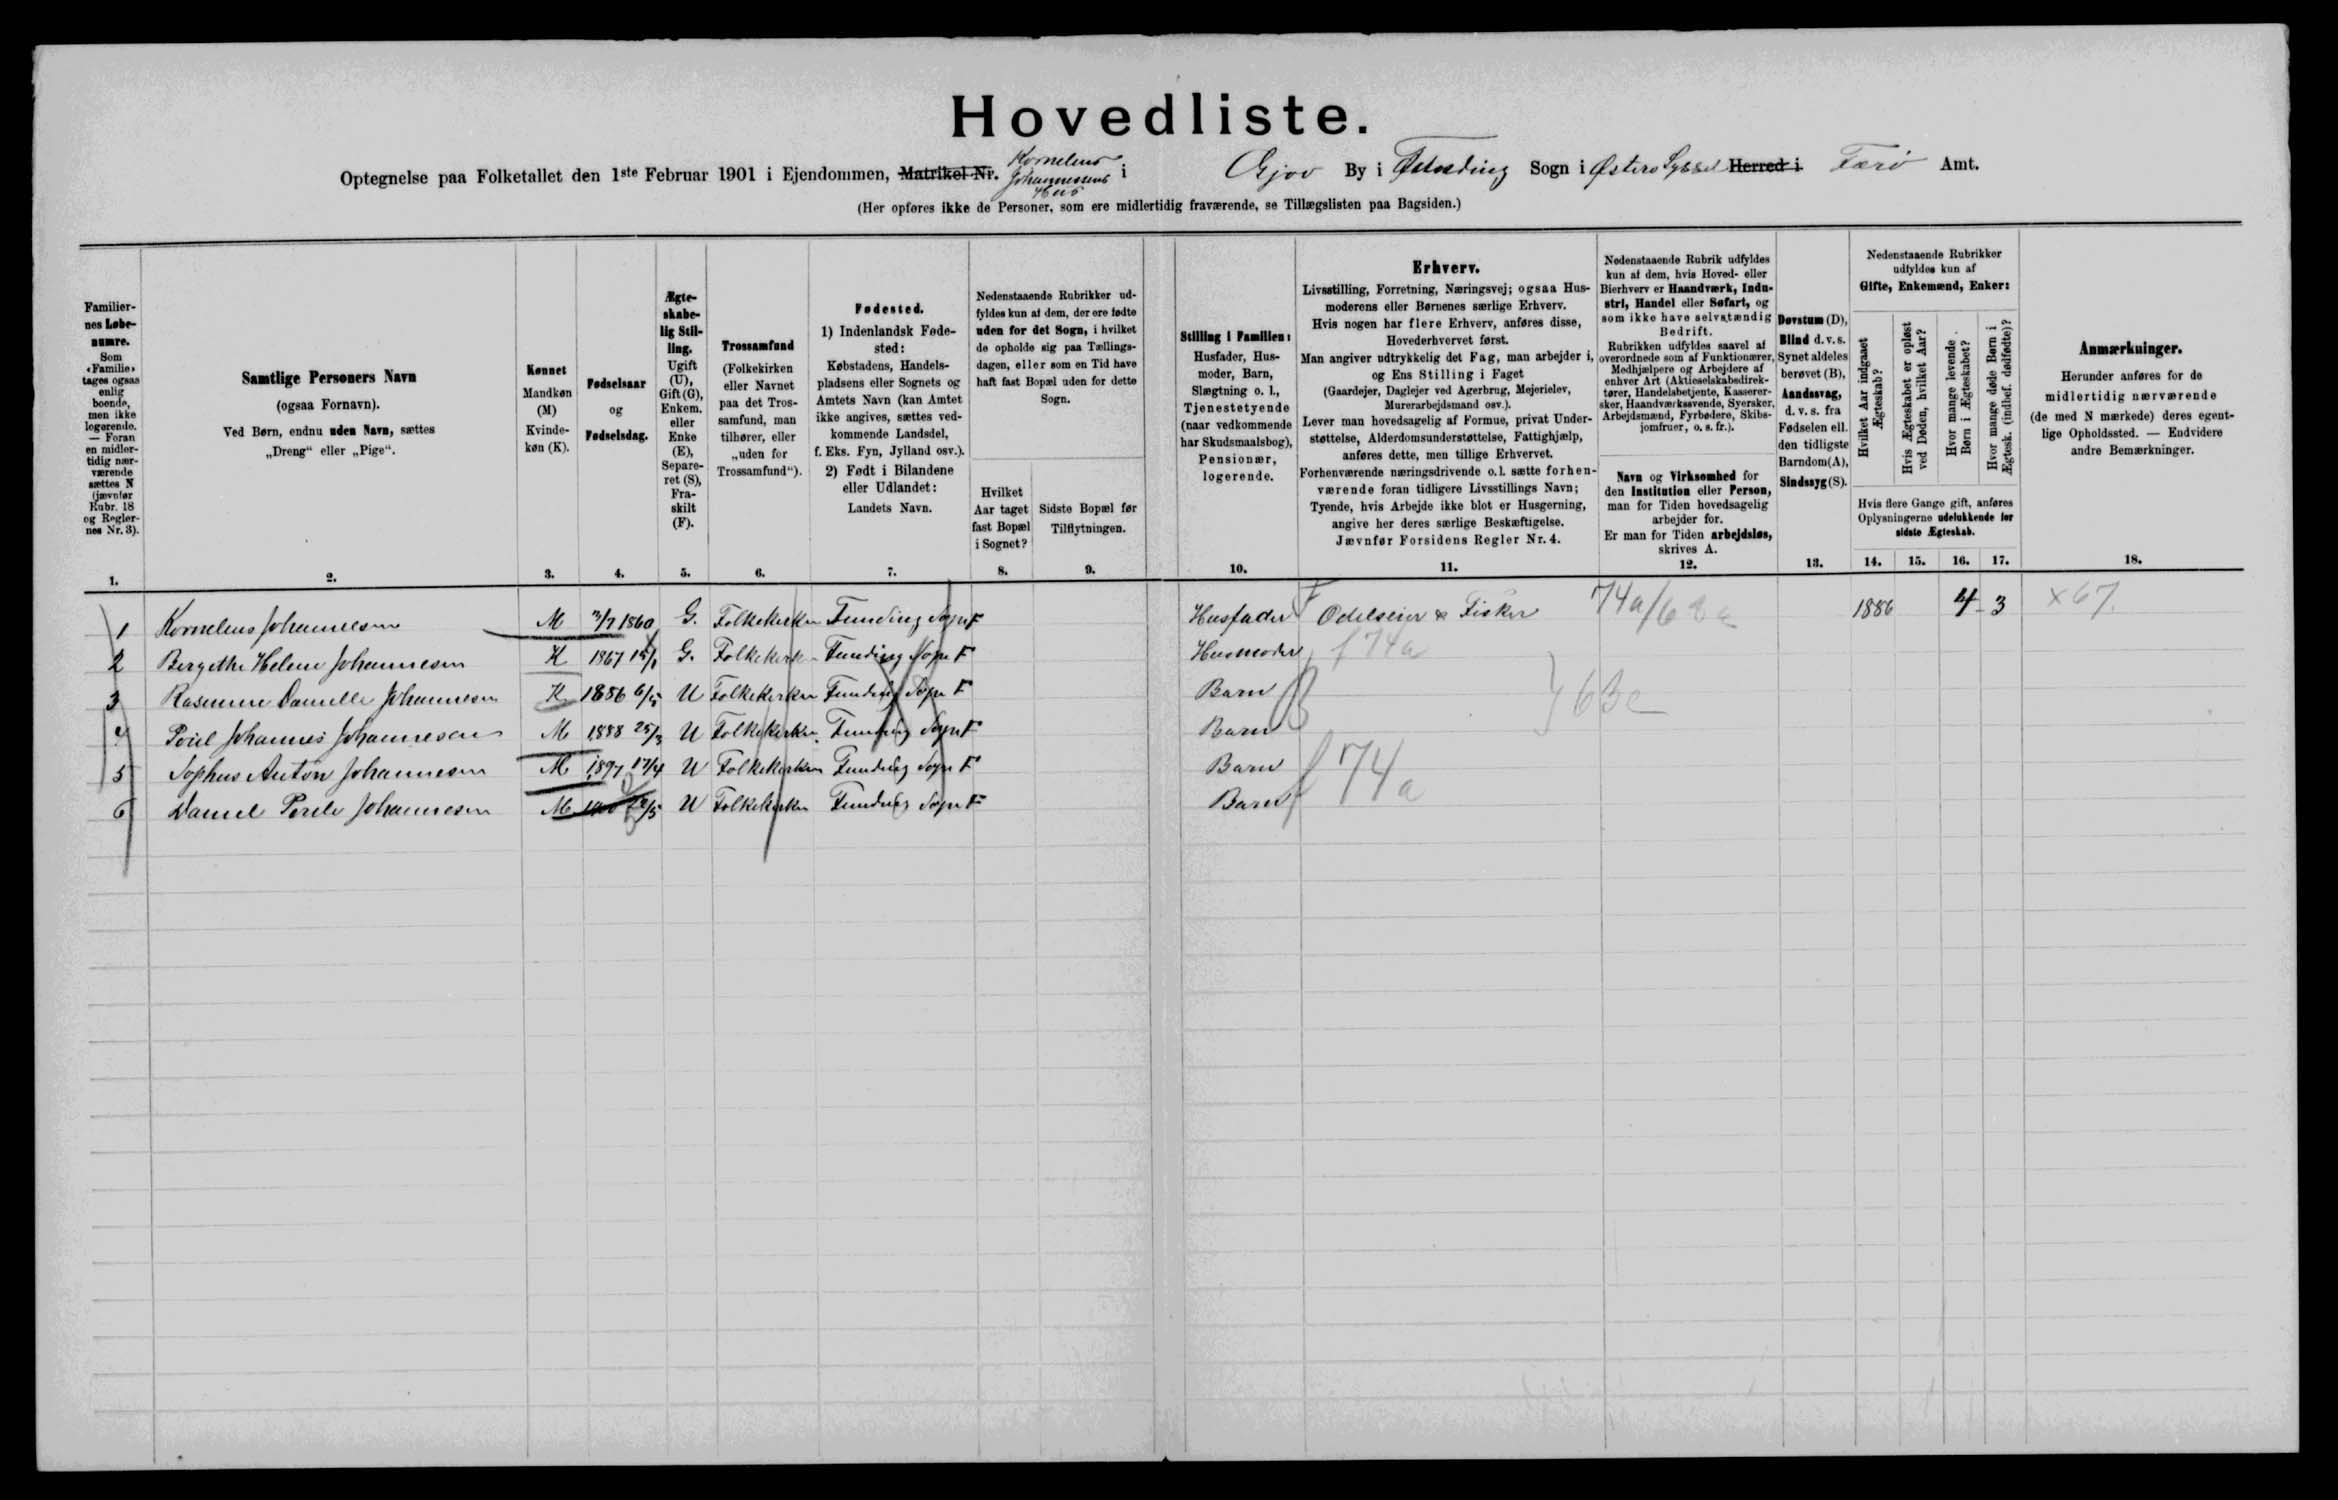 Hovedliste.
Optegnelse paa Folketallet den 1ste Februar 1901 i Ejendommen, Matrikel Nr. Kornelius Johannesens Hus i Gjov By i Funding Sogn i Østerø Syssel Herred i Færø Amt.
(Her opføres ikke de Personer, som ere midlertidig fraværende, se Tillægslisten paa Bagsiden.)
Familier-
nes Løbe-
numre.
Som
«Familie»
tages ogsaa
enlig
boende,
men ikke
logerende.
— Foran
en midler-
tidig nær-
værende
sættes N
(jævnfør
Rubr. 18
og Regler-
nes Nr. 3).
1.
Samtlige Personers Navn
(ogsaa Fornavn).
Ved Børn, endnu uden Navn, sættes
„Dreng“ eller „Pige“.
2.
Kønnet
Mandkøn
(M)
Kvinde-
køn (K).
3.
Fødselsaar
og
Fødselsdag.
4.
Ægte-
skabe-
lig Stil-
ling.
Ugift
(U),
Gift (G),
Enkem.
eller
Enke
(E),
Separe-
ret (S),
Fra-
skilt
(F).
5.
Trossamfund
(Folkekirken
eller Navnet
paa det Tros-
samfund, man
tilhører, eller
„uden for
Trossamfund“).
6.
Fødested.
1) Indenlandsk Føde-
sted:
Købstadens, Handels-
pladsens eller Sognets og
Amtets Navn (kan Amtet
ikke angives, sættes ved-
kommende Landsdel,
f. Eks. Fyn, Jylland osv.).
2) Født i Bilandene
eller Udlandet:
Landets Navn.
7.
Nedenstaaende Rubrikker ud-
fyldes kun af dem, der ere fødte
uden for det Sogn, i hvilket
de opholde sig paa Tællings-
dagen, eller som en Tid have
haft fast Bopæl uden for dette
Sogn.
Hvilket
Aar taget
fast Bopæl
i Sognet?
8.
Sidste Bopæl før
Tilflytningen.
9.
Stilling i Familien:
Husfader, Hus-
moder, Barn,
Slægtning o. l.,
Tjenestetyende
(naar vedkommende
har Skudsmaalsbog),
Pensionær,
logerende.
10.
Erhverv.
Livsstilling, Forretning, Næringsvej; ogsaa Hus-
moderens eller Børnenes særlige Erhverv.
Hvis nogen har flere Erhverv, anføres disse,
Hovederhvervet først.
Man angiver udtrykkelig det Fag, man arbejder i,
og Ens Stilling i Faget
(Gaardejer, Daglejer ved Agerbrug, Mejerielev,
Murerarbejdsmand osv.).
Lever man hovedsagelig af Formue, privat Under-
støttelse, Alderdomsunderstøttelse, Fattighjælp,
anføres dette, men tillige Erhvervet.
Forhenværende næringsdrivende o. l. sætte forhen-
værende foran tidligere Livsstillings Navn;
Tyende, hvis Arbejde ikke blot er Husgerning,
angive her deres særlige Beskæftigelse.
Jævnfør Forsidens Regler Nr. 4.
11.
Nedenstaaende Rubrik udfyldes
kun af dem, hvis Hoved- eller
Bierhverv er Haandværk, Indu-
stri, Handel eller Søfart, og
som ikke have selvstændig
Bedrift.
Rubrikken udfyldes saavel af
overordnede som af Funktionærer,
Medhjælpere og Arbejdere af
enhver Art (Aktieselskabsdirek-
tører, Handelsbetjente, Kasserer-
sker, Haandværkssvende, Syersker,
Arbejdsmænd, Fyrbødere, Skibs-
jomfruer, o. s. fr.).
Navn og Virksomhed for
den Institution eller Person,
man for Tiden hovedsagelig
arbejder for.
Er man for Tiden arbejdsløs,
skrives A.
12.
Døvstum (D),
Blind d. v. s.
Synet aldeles
berøvet (B),
Aandssvag,
d. v. s. fra
Fødselen ell.
den tidligste
Barndom (A),
Sindssyg (S).
13.
Nedenstaaende Rubrikker
udfyldes kun af
Gifte, Enkemænd, Enker:
Hvilket Aar indgaaet
Ægteskab?
Hvis Ægteskabet er opløst
ved Døden, hvilket Aar?
Hvor mange levende
Børn i Ægteskabet?
Hvor mange døde Børn i
Ægtesk. (indbef. dødfødte)?
Hvis flere Gange gift, anføres
Oplysningerne udelukkende for
sidste Ægteskab.
14. 15. 16. 17.
Anmærkninger.
Herunder anføres for de
midlertidig nærværende
(de med N mærkede) deres egent-
lige Opholdssted. — Endvidere
andre Bemærkninger.
18.
1 Kornelius Johannesen M /7 1860 G. Folkekirken Funding Sogn F Husfader Odelseier & Fisker 74a/63e 1886 4 3 x67.
2 Bergithe Helene Johannesen K 1867 15/1 G. Folkekirk Funding Sogn F Husmoder f74a
3 Rasmine Danielle Johannesen K 1886 6/5 U Folkekirken Funding Sogn F Barn 63e
4 Poul Johannes Johannesen M 1888 25/3 U Folkekirken Funding Sogn F Barn
5 Sophus Anton Johannesen M 1897 17/4 U Folkekirken Funding Sogn F Barn f74a
6 Daniel Johannesen M /5 U Folkekirken Funding Sogn F Barn